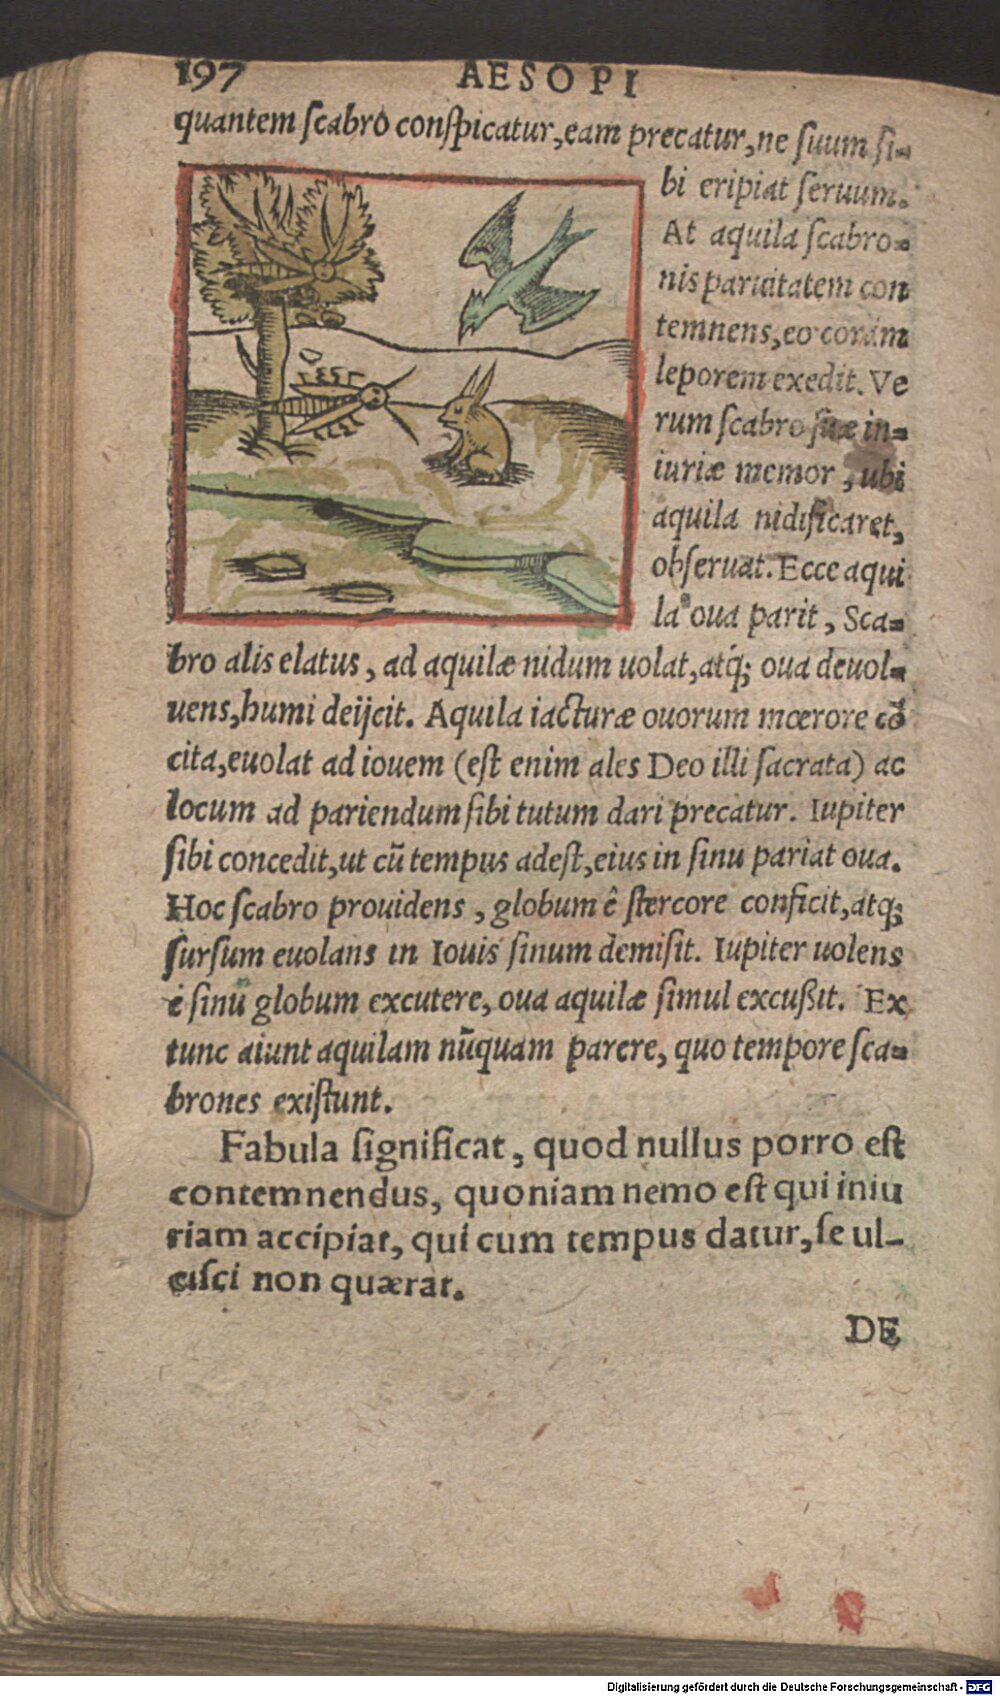 197 AESOPI
quantem ſcabro conſpicatur, eam precatur, ne ſuum ſi-
bi eripiat ſeruum.
At aquila ſcabro-
nis paruitatem con
temnens, eo coram
leporem exedit. Ve
rum ſcabro ſuæ in-
iuriæ memor, ubi
aquila nidificaret,
obſeruat. Ecce aqui
la oua parit, Sca-
bro alis elatus, ad aquilæ nidum uolat, atq; oua deuol-
uens, humi deijcit. Aquila iacturæ ouorum mœrore cō
cita, euolat ad iouem (eſt enim ales Deo illi ſacrata) ac
locum ad pariendum ſibi tutum dari precatur. Iupiter
ſibi concedit, ut cū tempus adeſt, eius in ſinu pariat oua.
Hoc ſcabro prouidens, globum ê ſtercore conficit, atq;
ſurſum euolans in Iouis ſinum demiſit. Iupiter uolens
è ſinu globum excutere, oua aquilæ ſimul excußit. Ex
tunc aiunt aquilam nūquam parere, quo tempore ſca-
brones exiſtunt.
Fabula ſignificat, quod nullus porro eſt
contemnendus, quoniam nemo eſt qui iniu
riam accipiat, qui cum tempus datur, ſe ul-
ciſci non quærat.
DE
Digitalisierung gefördert durch die Deutsche Forschungsgemeinschaft - DFG